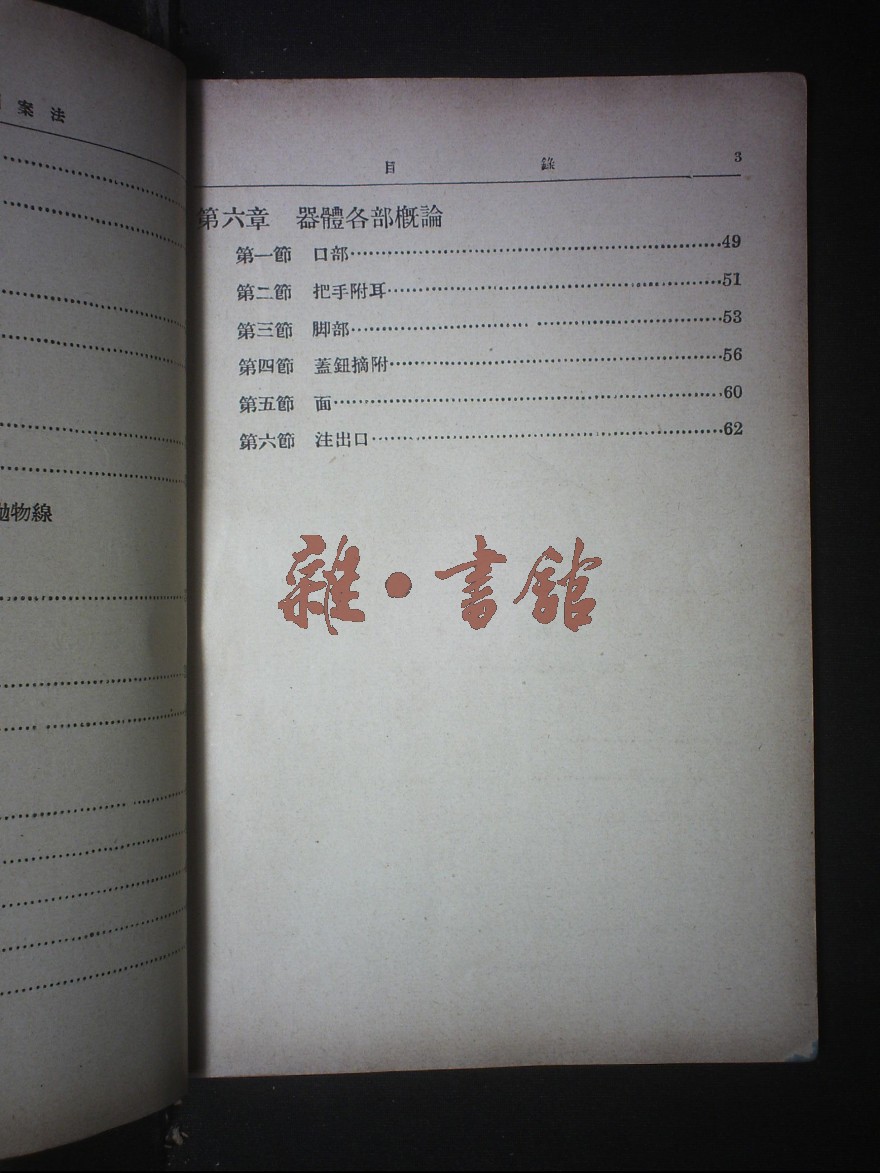 案法
拋物線
目錄 3
第六章 器體各部概論
第一節 口部……49
第二節 把手附耳……51
第三節 脚部……53
第四節 蓋鈕摘附……56
第五節 面……60
第六節 注出口……62
雜·書館